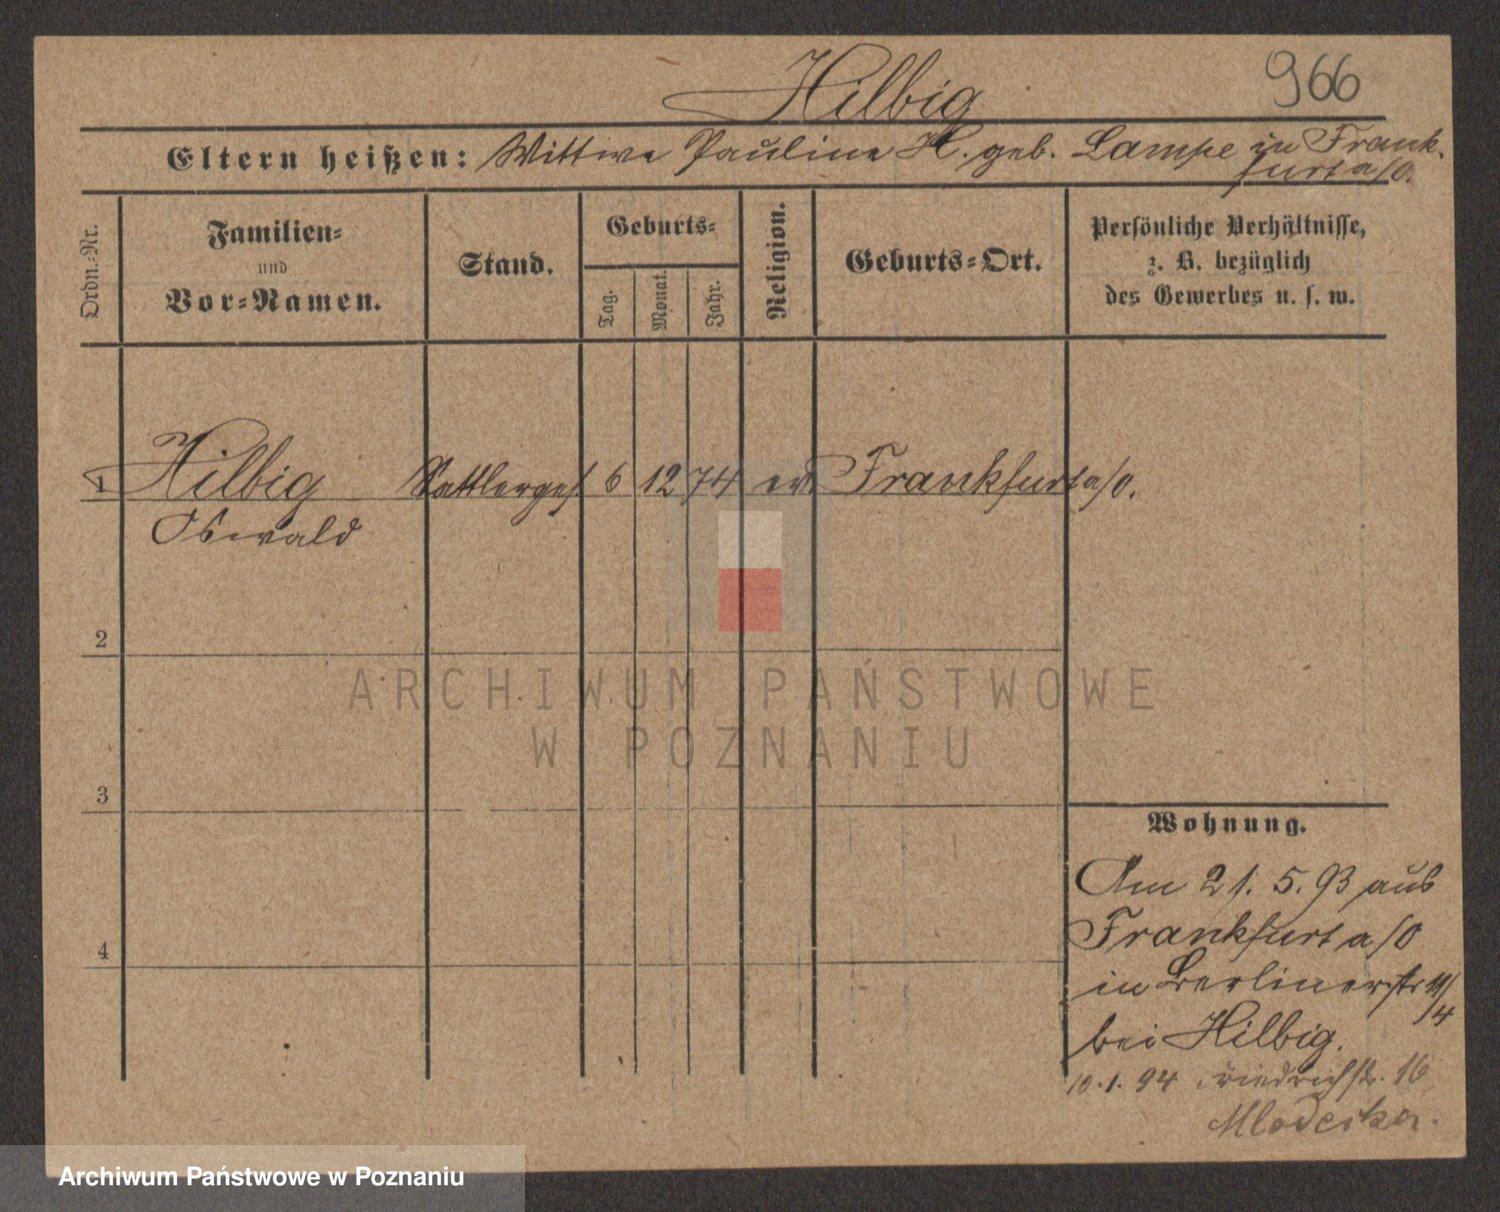 Hilbig
966
Eltern heißen: Wittwe Pauline H. geb. Lampe in Frank-
furt a/O.
Ordn.-Nr.
Familien-
und
Vor-Namen.
Stand.
Geburts-
Tag.
Monat.
Jahr.
Religion.
Geburts-Ort.
Persönliche Verhältnisse,
z. B. bezüglich
des Gewerbes u. s. w.
1 Hilbig Sattlerges. 6 12 74 ev. Frankfurt a/O.
Oswald
2
ARCHIWUM PAŃSTWOWE
W POZNANIU
3
Wohnung.
Am 21. 5. 93 aus
Frankfurt a/O
in Berlinerstr
bei Hilbig.
10. 1. 94 Friedrichstr. 16
4
Archiwum Państwowe w Poznaniu